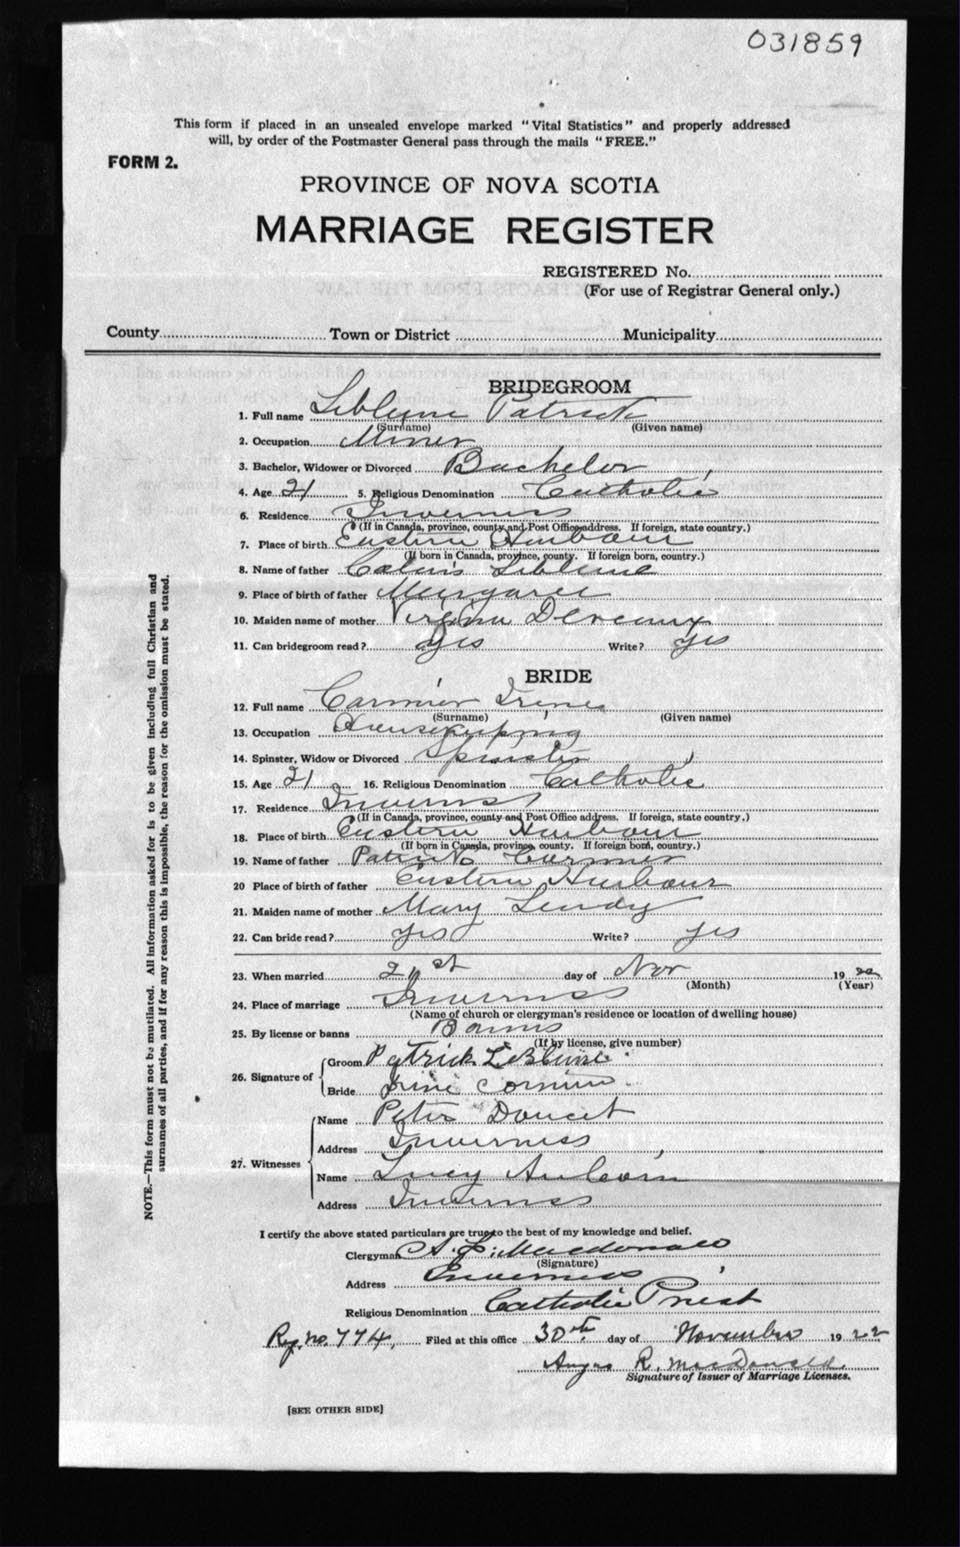 031859
This form if placed in an unsealed envelope marked "Vital Statistics" and properly addressed
will, by order of the Postmaster General pass through the mails "FREE."
FORM 2.
PROVINCE OF NOVA SCOTIA
MARRIAGE REGISTER
REGISTERED No.
(For use of Registrar General only.)
County Town or District Municipality
BRIDEGROOM
1. Full name Patrick
(Surname) (Given name)
2. Occupation Miner
3. Bachelor, Widower or Divorced Bachelor
4. Age 21 5. Religious Denomination Catholic
6. Residence Inverness
(If in Canada, province, county and Post Office address. If foreign, state country.)
7. Place of birth Eastern Harbour
(If born in Canada, province, county. If foreign born, country.)
8. Name of father
9. Place of birth of father Margaree
10. Maiden name of mother Deveaux
11. Can bridegroom read? Yes Write? Yes
BRIDE
12. Full name Irene
(Surname) (Given name)
13. Occupation Housekeeping
14. Spinster, Widow or Divorced Spinster
15. Age 21 16. Religious Denomination Catholic
17. Residence Inverness
(If in Canada, province, county and Post Office address. If foreign, state country.)
18. Place of birth Eastern Harbour
(If born in Canada, province, county. If foreign born, country.)
19. Name of father
20 Place of birth of father Eastern Harbour
21. Maiden name of mother Mary
22. Can bride read? yes Write? yes
23. When married 21st day of Nov 1922
(Month) (Year)
24. Place of marriage Inverness
(Name of church or clergyman's residence or location of dwelling house)
25. By license or banns Banns
(If by license, give number)
26. Signature of Groom Patrick
Bride
27. Witnesses Name Peter Doucet
Address Inverness
Name Lucy Aucoin
Address Inverness
I certify the above stated particulars are true to the best of my knowledge and belief.
Clergyman A. L. Macdonald
(Signature)
Address Inverness
Religious Denomination Catholic Priest
Reg. no. 774, Filed at this office 30th day of November 1922
Angus R. MacDonald
Signature of Issuer of Marriage Licenses.
[SEE OTHER SIDE]
NOTE.—This form must not be mutilated. All information asked for is to be given including full Christian and
surnames of all parties, and if for any reason this is impossible, the reason for the omission must be stated.